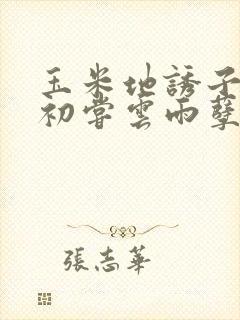 玉米地誘子
初嘗雲雨孽
張志華